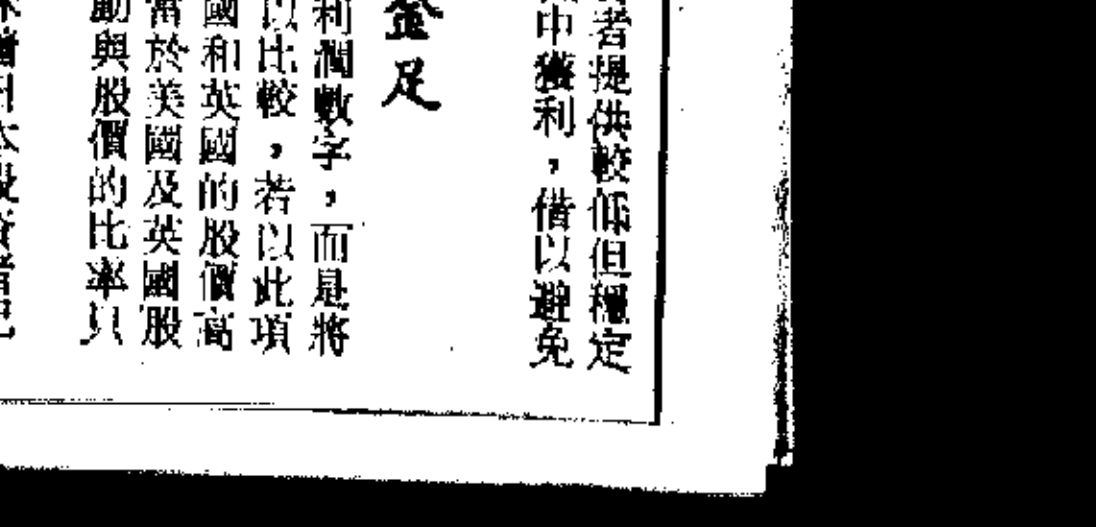 者提供較低但穩定
中獲利，借以避免
足
利潤數字，而是將
以比較，若以此項
國和英國的股價高
當於美國及英國股
動與股價的比率只